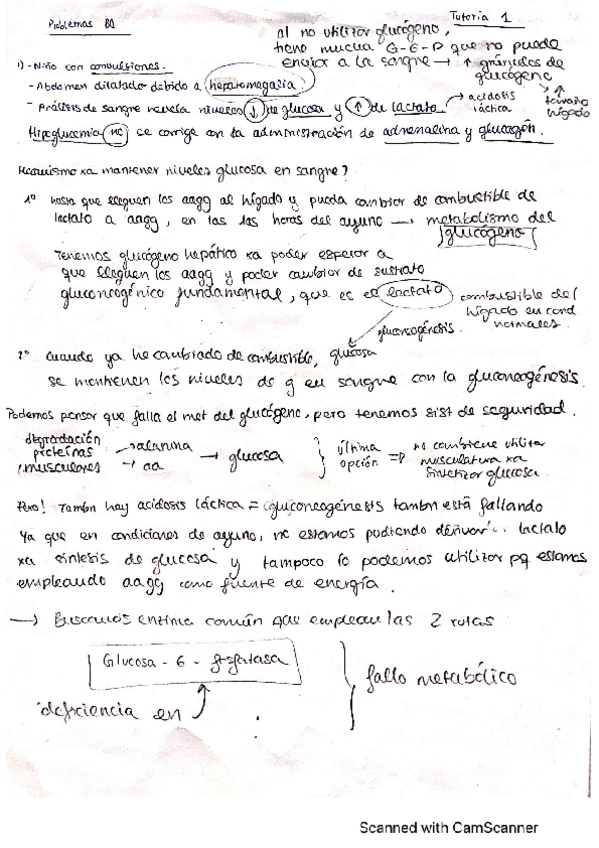 Problemas BQ
Tutoria 1
al no utilizar glucógeno,
tiene mucha G-6-P que no puede
enviar a la sangre → ↑ gránulos de
glucógeno
1) - Niño con convulsiones.
- Abdomen dilatado debido a hepatomegalia
↓ tamaño
hígado
- Análisis de sangre revela niveles ↓ de glucosa y ↑ de lactato → acidosis
láctica
Hipoglucemia no se corrige con la administración de adrenalina y glucagón.
Mecanismo xa mantener niveles glucosa en sangre?
1º hasta que lleguen los aagg al hígado y pueda cambiar de combustible de
lactato a aagg, en las 1as horas del ayuno → metabolismo del
glucógeno
Tenemos glucógeno hepático xa poder esperar a
que lleguen los aagg y poder cambiar de sustrato
gluconeogénico fundamental, que es el lactato combustible del
hígado en cond
normales.
gluconeogénesis.
2º cuando ya he cambiado de combustible, glucosa
se mantienen los niveles de g en sangre con la gluconeogénesis
Podemos pensar que falla el met del glucógeno, pero tenemos sist de seguridad.
degradación
proteínas
musculares
→ alanina
→ aa
→ glucosa
última
opción
⇒ no conviene utilizar
musculatura xa
sintetizar glucosa.
Pero! Tambn hay acidosis láctica = gluconeogénesis tambn está fallando
ya que en condiciones de ayuno, no estamos pudiendo derivar lactato
xa síntesis de glucosa y tampoco lo podemos utilizar pq estamos
empleando aagg como fuente de energía.
→ Buscamos enzima común que emplean las 2 rutas
Glucosa - 6 - fosfatasa
fallo metabólico
deficiencia en
Scanned with CamScanner